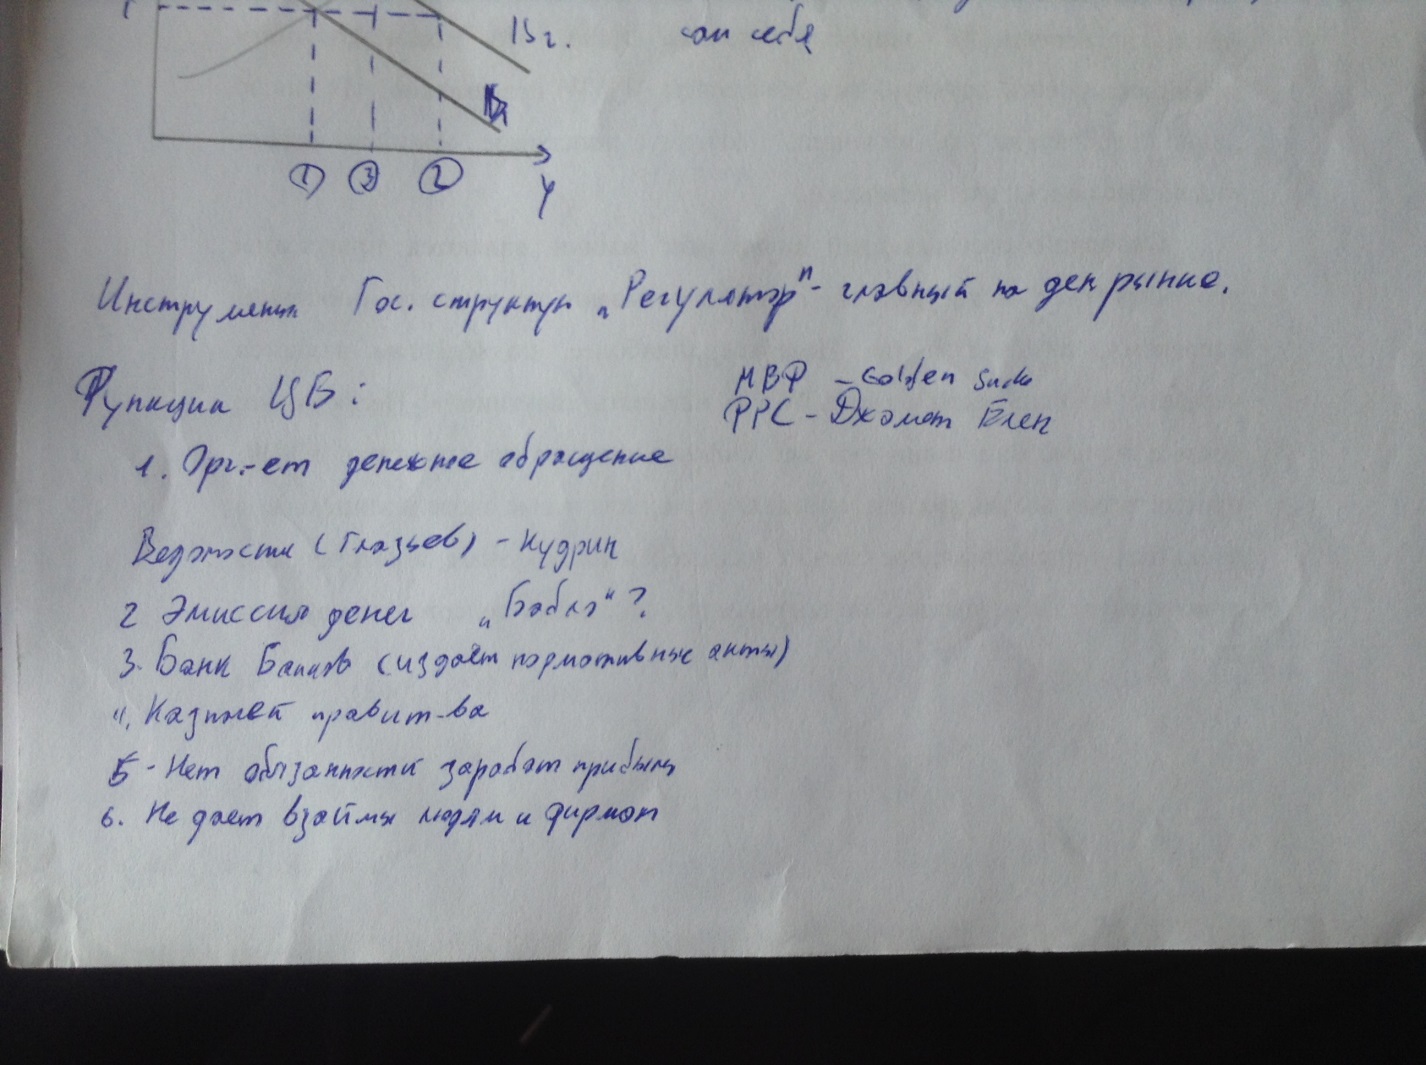 сам себя
① ③ ②
Y
Инструменты Гос. структуры „Регулятор" - главный на ден рынке.
Функции ЦБ:
МВФ - Golden
ФРС - Джанет Елен
1. Орг.-ет денежное обращение
Ведомости (Глазьев) - Кудрин
2 Эмиссия денег „Бабло"?
3. Банк Банков (издаёт нормативные акты)
4. Казначей правит-ва
5 - Нет обязанности заработ прибыль
6. Не дает взаймы людям и фирмам